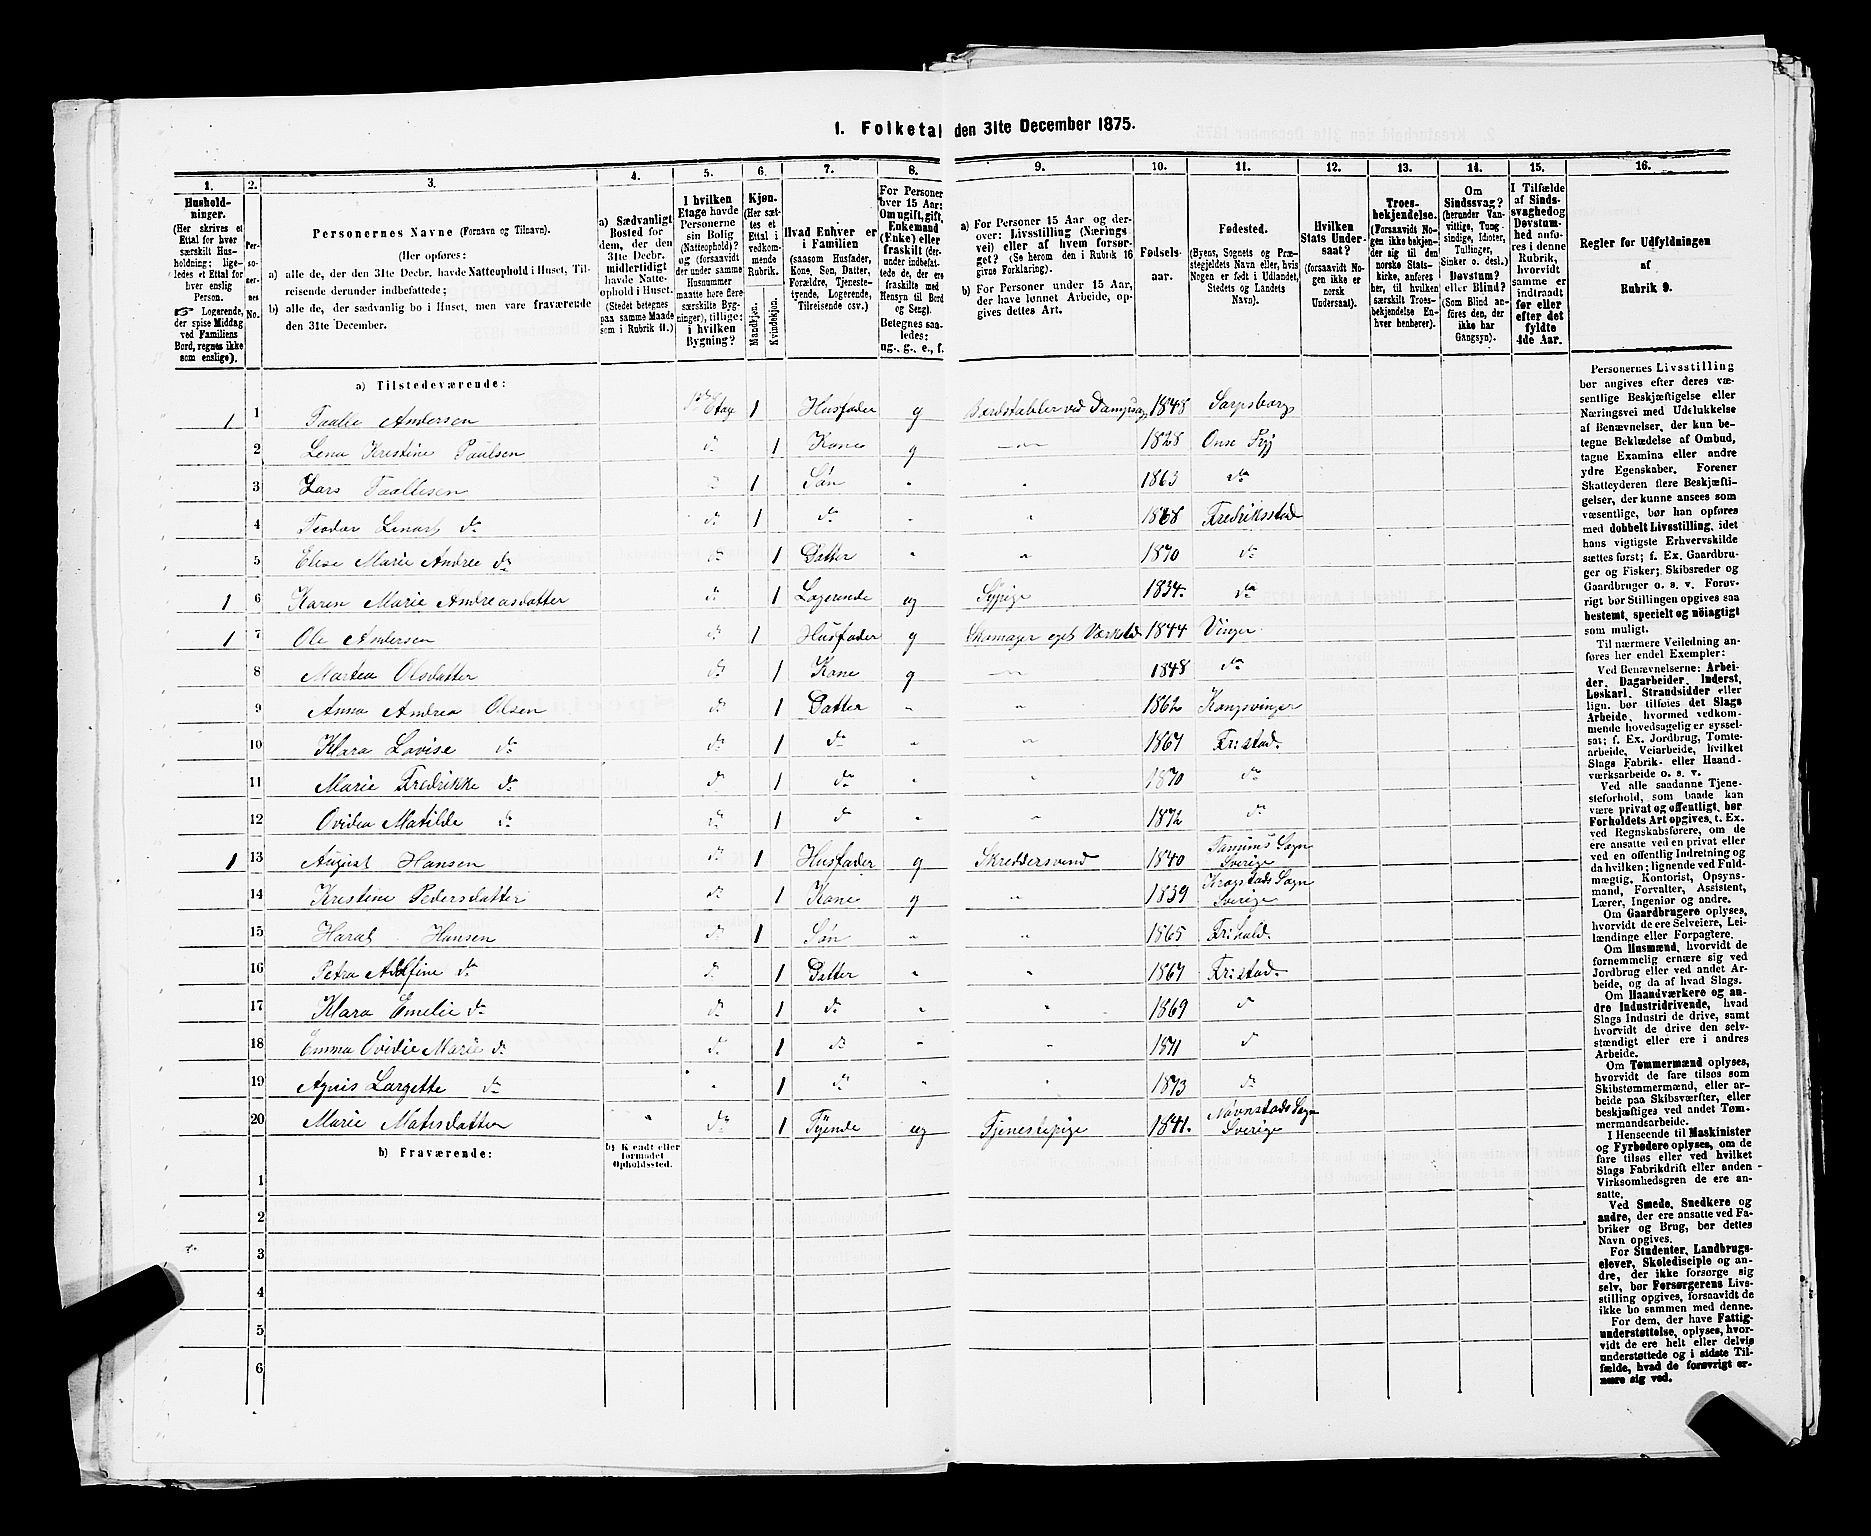 1. Folketal den 31te December 1875.
1. 2. 3. 4. 5. 6. 7. 8. 9. 10. 11. 12. 13. 14. 15. 16.
Hushold-
ninger.
(Her skrives et
Ettal for hver
særskilt Hus-
holdning; lige-
ledes et Ettal for
hver enslig
Person.
☞ Logerende,
der spise Middag
ved Familiens
Bord, regnes ikke
som enslige).
Per-
so-
ner-
nes
No.
Personernes Navne (Fornavn og Tilnavn).
(Her opføres:
a) alle de, der den 31te Decbr. havde Natteophold i Huset, Til-
reisende derunder indbefattede;
b) alle de, der sædvanlig bo i Huset, men vare fraværende
den 31te December.
a) Sædvanligt
Bosted for
dem, der den
31te Decbr.
midlertidigt
havde Natte-
ophold i Huset.
(Stedet betegnes
paa samme Maade
som i Rubrik 11.)
I hvilken
Etage havde
Personerne
sin Bolig
(Natteophold)?
og (forsaavidt
der under samme
Husnummer
maatte høre flere
særskilte Byg-
ninger), tillige:
i hvilken
Bygning?
Kjøn.
(Her sæt-
tes et
Ettal i
vedkom-
mende
Rubrik.
Mandkjøn.
Kvindekjøn.
Hvad Enhver er
i Familien
(saasom Husfader,
Kone, Søn, Datter,
Forældre, Tjeneste-
tyende, Logerende,
Tilreisende osv.)
For Personer
over 15 Aar:
Om ugift, gift,
Enkemand
(Enke) eller
fraskilt (der-
under indbefat-
tede de, der ere
fraskilte med
Hensyn til Bord
og Seng).
Betegnes saa-
ledes:
ug., g., e., f.
a) For Personer 15 Aar og der-
over: Livsstilling (Nærings-
vei) eller af hvem forsør-
get? (Se herom den i Rubrik 16
givne Forklaring).
b) For Personer under 15 Aar,
der have lønnet Arbeide, op-
gives dettes Art.
Fødsels-
aar.
Fødested.
(Byens, Sognets og Præ-
stegjeldets Navn eller, hvis
Nogen er født i Udlandet,
Stedets og Landets
Navn).
Hvilken
Stats Under-
saat?
(forsaavidt No-
gen ikke er
norsk
Undersaat).
Troes-
bekjendelse.
(Forsaavidt No-
gen ikke bekjen-
der sig til den
norske Stats-
kirke, anføres
her, til hvilken
særskilt Troes-
bekjendelse En-
hver henhører).
Om
Sindssvag?
(herunder Van-
vittige, Tung-
sindige, Idioter,
Tullinger,
Sinker o. desl.)
Døvstum?
eller Blind?
(Som Blind an-
føres den, der
ikke har
Gangsyn).
I Tilfælde
af Sinds-
svaghed og
Døvstum-
hed anføres
i denne
Rubrik,
hvorvidt
samme er
indtraadt
før eller
efter det
fyldte
4de Aar.
Regler for Udfyldningen
af
Rubrik 9.
a) Tilstedeværende:
1 1 Taalle Andersen 1ste Etage 1 Husfader g Bordstabler ved Dampsag 1848 Sarpsborg
2 Lena Kristine Paulsen do 1 Kone g 1828 Onse Prgj
3 Lars Taallesen do 1 Søn 1863 do
4 Teodor Linart do do 1 do 1868 Fredriksstad
5 Elise Marie Andrea do do 1 Datter 1870 do
1 6 Karen Marie Andreasdatter do 1 Logerende ug Sypige 1834. do
1 7 Ole Andersen do 1 Husfader g Skomager eget Værksted 1844 Vinger
8 Martea Olsdatter do 1 Kone g 1848 do
9 Anna Andrea Olsen do 1 Datter 1862 Kongsvinger
10 Klara Lovise do do 1 do 1867 Fr:stad.
11 Marie Fredrikke do do 1 do 1870 do
12 Ovidea Matilde do do 1 do 1872 do
1 13 August Hansen do 1 Husfader g Skreddersvend 1840 Tanums Sogn Sverige
14 Kristine Pedersdatter do 1 Kone g 1839 Krogstads Sogn Sverige
15 Haral Hansen do 1 Søn 1865 Fr:hald.
16 Petra Adolfine do do 1 Datter 1867 Fr:stad.
17 Klara Emelie do do 1 do 1869 do
18 Emma Ovidie Marie do do 1 do 1871 do
19 Agnis Largette do 1 do 1873 do
20 Marie Matisdatter do 1 Tyende ug Tjenestepige 1841. Navnstads Sogn Sverige
b) Fraværende:
b) Kjendt eller
formodet
Opholdssted.
1
2
3
4
5
6
Personernes Livsstilling
bør angives efter deres væ-
sentlige Beskjæftigelse eller
Næringsvei med Udelukkelse
af Benævnelser, der kun be-
tegne Beklædelse af Ombud,
tagne Examina eller andre
ydre Egenskaber. Forener
Skatteyderen flere Beskjæfti-
gelser, der kunne ansees som
væsentlige, bør han opføres
med dobbelt Livsstilling, idet
hans vigtigste Erhvervskilde
sættes først; f. Ex. Gaardbru-
ger og Fisker; Skibsreder og
Gaardbruger o. s. v. Forøv-
rigt bør Stillingen opgives saa
bestemt, specielt og nöiagtigt
som muligt.
Til nærmere Veiledning an-
føres her endel Exempler:
Ved Benævnelserne: Arbei-
der, Dagarbeider, Inderst,
Løskarl, Strandsidder eller
lign. bør tilføies det Slags
Arbeide, hvormed vedkom-
mende hovedsagelig er syssel-
sat; f. Ex. Jordbrug, Tomte-
arbeide, Veiarbeide, hvilket
Slags Fabrik- eller Haand-
værksarbeide o. s. v.
Ved alle saadanne Tjene-
steforhold, som baade kan
være privat og offentligt, bør
Forholdets Art opgives, t. Ex.
ved Regnskabsførere, om de
ere ansatte ved en privat eller
ved en offentlig Indretning og
da hvilken; lignende ved Fuld-
mægtig, Kontorist, Opsyns-
mand, Forvalter, Assistent,
Lærer, Ingeniør og andre.
Om Gaardbrugere oplyses,
hvorvidt de ere Selveiere, Lei-
lændinge eller Forpagtere.
Om Husmænd, hvorvidt de
fornemmelig ernære sig ved
Jordbrug eller ved andet Ar-
beide, og da af hvad Slags.
Om Haandværkere og an-
dre Industridrivende, hvad
Slags Industri de drive, samt
hvorvidt de drive den selv-
stændigt eller ere i andres
Arbeide.
Om Tømmermænd oplyses,
hvorvidt de fare tilsøs som
Skibstømmermænd, eller ar-
beide paa Skibsværfter, eller
beskjæftiges ved andet Tøm-
mermandsarbeide.
I Henseende til Maskinister
og Fyrbødere oplyses, om de
fare tilsøs eller ved hvilket
Slags Fabrikdrift eller anden
Virksomhedsgren de ere an-
satte.
Ved Smede, Snedkere og
andre, der ere ansatte ved Fa-
briker og Brug, bør dettes
Navn opgives.
For Studenter, Landbrugs-
elever, Skoledisciple og an-
dre, der ikke forsørge sig
selv, bør Forsørgerens Livs-
stilling opgives, forsaavidt de
ikke bo sammen med denne.
For dem, der have Fattig-
understøttelse, oplyses, hvor-
vidt de ere helt eller delvis
understøttede og i sidste Til-
fælde, hvad de forøvrigt er-
nære sig ved.